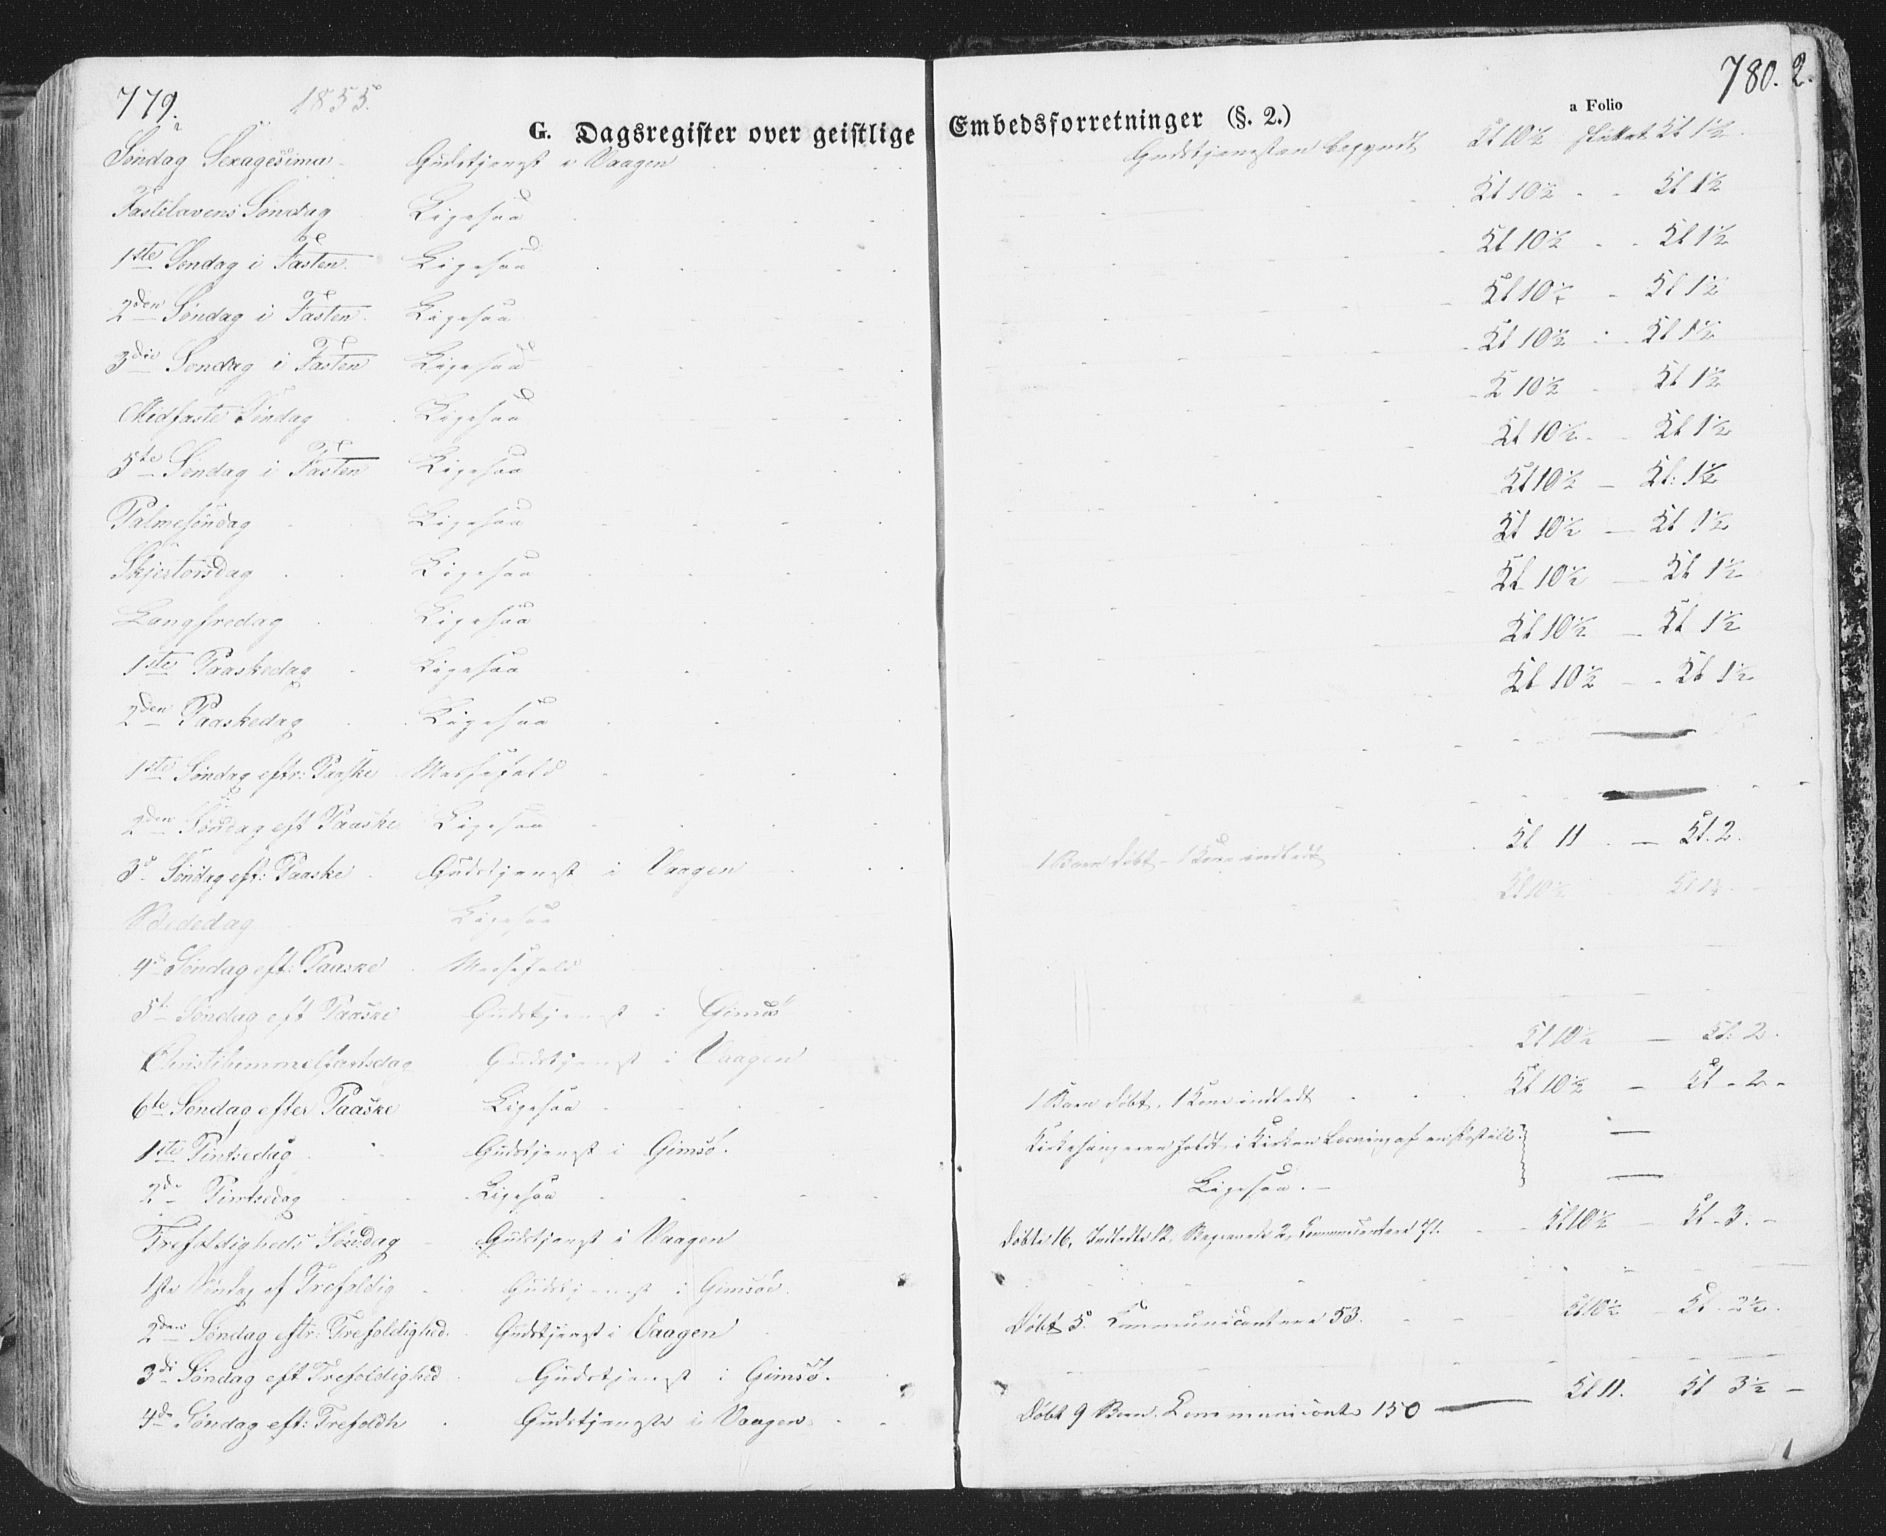 779. 1855. 780. 2.
G. Dagsregister over geistlige Embedsforretninger (§. 2.) a Folio
Søndag Sexagesima Gudstjenest i Vaagen Gudstjenesten begyndt Kl 10½ sluttet Kl 1½
Fastelavens Søndag Ligesaa Kl 10½ Kl 1½
1ste Søndag i Fasten Ligesaa Kl 10½ Kl 1½
2den Søndag i Fasten Ligesaa Kl 10½ Kl 1½
3die Søndag i Fasten Ligesaa Kl 10½ Kl 1½
Midfaste Søndag Ligesaa Kl 10½ Kl 1½
5te Søndag i Fasten Ligesaa Kl 10½ - Kl 1½
Palmesøndag Ligesaa Kl 10½ - Kl: 1½
Skjertorsdag Ligesaa Kl 10½ - Kl 1½
Langfredag Ligesaa Kl 10½ - Kl 1½
1ste Paaskedag Ligesaa Kl 10½ - Kl 1½
2den Paaskedag Ligesaa Kl 10½ - Kl 1½
1ste Søndag eftr: Paaske Messefald —
2den Søndag eft Paaske Ligesaa —
3d Søndag eft: Paaske Gudstjenest i Vaagen 1 Barn døbt - 1 Kone indledt Kl 11 - Kl. 2.
Bededag Ligesaa Kl 10½ Kl 1½
4d Søndag eft: Paaske Messefald
5t Søndag eft Paaske Gudstjenest i Gimsø
Christihimmelfartsdag Gudstjenest i Vaagen Kl 10½ - Kl: 2.
6te Søndag efter Paaske Ligesaa 1 Barn døbt, 1 Kone indledt Kl 10½ - Kl - 2 -
1ste Pintsedag Gudstjenest i Gimsø. Kirkesangeren holdt i Kirken Læsning af —
2d Pintsedag Ligesaa Ligesaa. - —
Trefoldigheds Søndag Gudstjenest i Vaagen Døbte 16, Indledte 12, 2, Communicanter 71. Kl 10½ - Kl - 3. -
1ste Søndag ef Trefoldig Gudstjenest i Gimsøe.
2den Søndag eftr: Trefoldighed. Gudstjenest i Vaagen Døbt 5. Communicantere 53. Kl 10½ - Kl. 2½.
3di Søndag eft Trefoldighed Gudstjenest i Gimsø.
4de Søndag eft: Trefoldh Gudstjeneste i Vaagen Døbt 9 Børn. Communicante 150 — Kl 11. Kl 3½ -